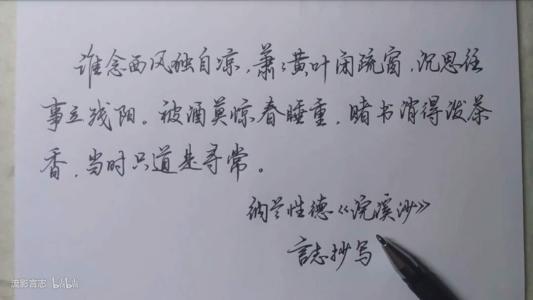 谁念西风独自凉，萧萧黄叶闭疏窗，沉思往
事立残阳。被酒莫惊春睡重，赌书消得泼茶
香，当时只道是寻常。
纳兰性德《浣溪沙》
言志抄写
流影言志 bilibili